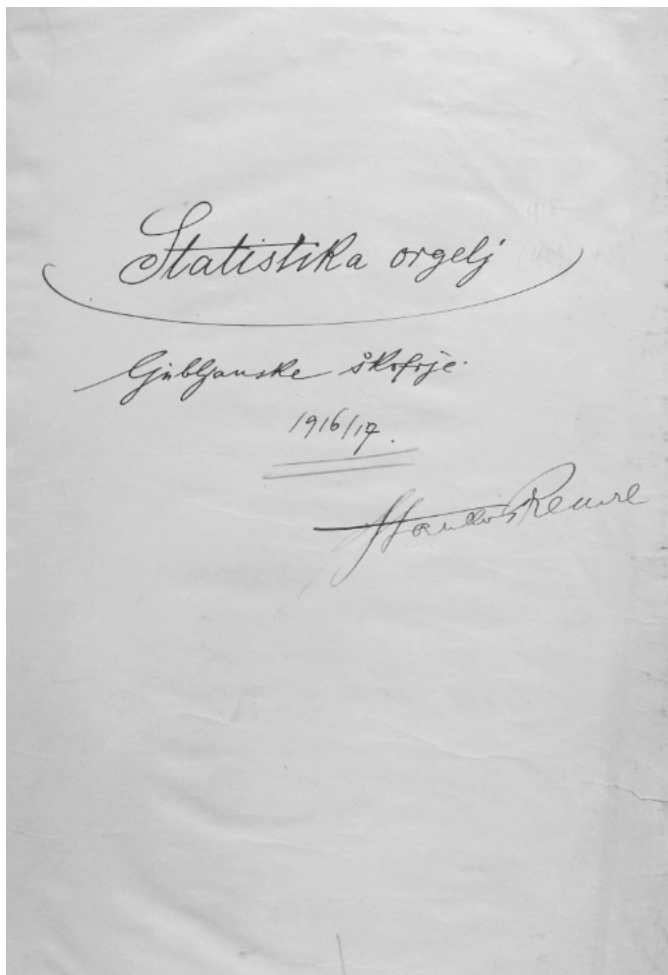 Statistika orgelj
ljubljanske škofije.
1916/17.
Stanko Premrl